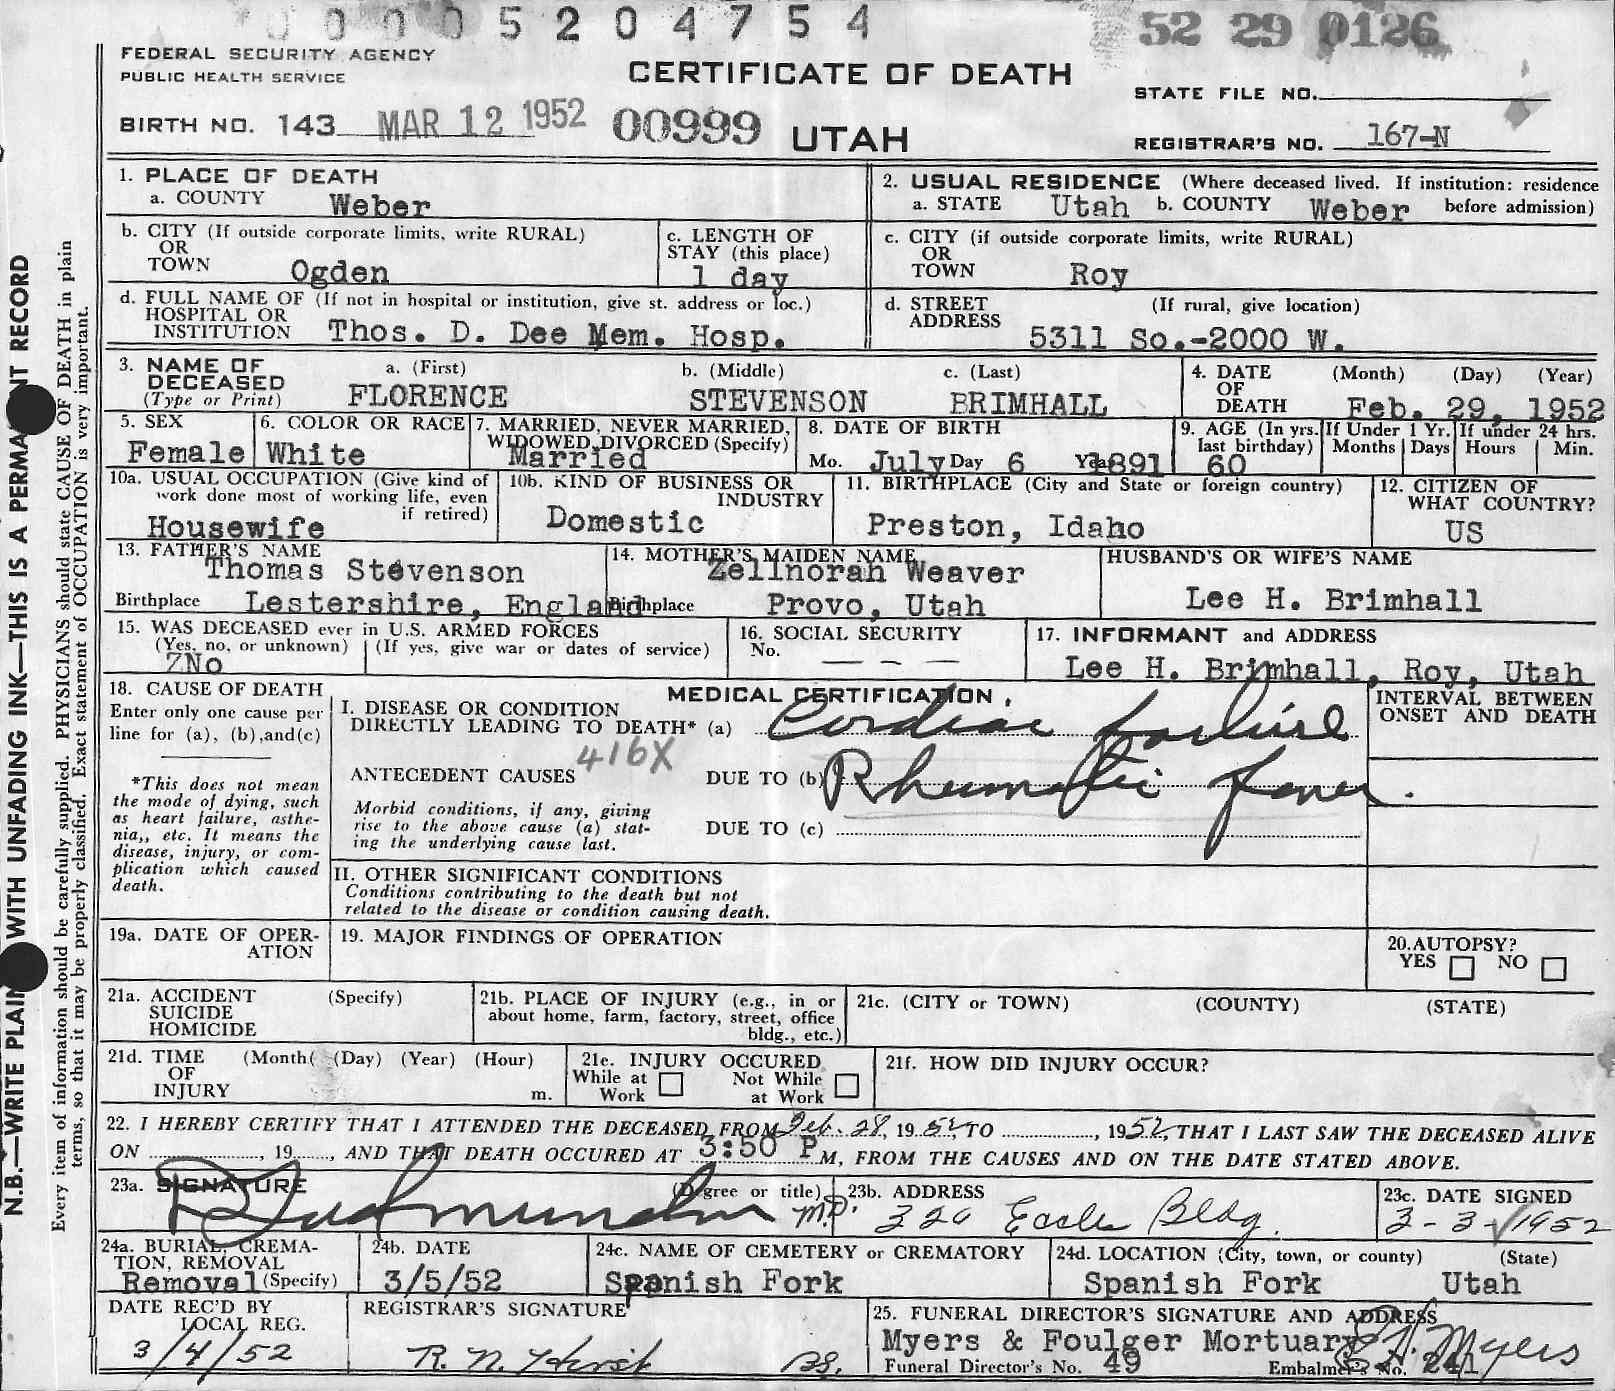 0 0 0 0 5 2 0 4 7 5 4
52 29 0126
FEDERAL SECURITY AGENCY
PUBLIC HEALTH SERVICE
CERTIFICATE OF DEATH
STATE FILE NO.
BIRTH NO. 143 MAR 12 1952 00999 UTAH
REGISTRAR'S NO. 167-N
N.B.—WRITE PLAIN WITH UNFADING INK—THIS IS A PERMA NT RECORD
Every item of information should be carefully supplied. PHYSICIANS should state CAUSE OF DEATH in plain
terms, so that it may be properly classified. Exact statement of OCCUPATION is very important.
1. PLACE OF DEATH
a. COUNTY Weber
2. USUAL RESIDENCE (Where deceased lived. If institution: residence
a. STATE Utah b. COUNTY Weber before admission)
b. CITY (If outside corporate limits, write RURAL)
OR
TOWN Ogden
c. LENGTH OF
STAY (this place)
1 day
c. CITY (if outside corporate limits, write RURAL)
OR
TOWN Roy
d. FULL NAME OF (If not in hospital or institution, give st. address or loc.)
HOSPITAL OR
INSTITUTION Thos. D. Dee Mem. Hosp.
d. STREET (If rural, give location)
ADDRESS 5311 So.-2000 W.
3. NAME OF
DECEASED
(Type or Print)
a. (First)
FLORENCE
b. (Middle)
STEVENSON
c. (Last)
BRIMHALL
4. DATE (Month) (Day) (Year)
OF
DEATH Feb. 29, 1952
5. SEX
Female
6. COLOR OR RACE
White
7. MARRIED, NEVER MARRIED,
WIDOWED, DIVORCED (Specify)
Married
8. DATE OF BIRTH
Mo. July Day 6 Year 1891
9. AGE (In yrs.
last birthday)
60
If Under 1 Yr.
Months Days
If under 24 hrs.
Hours Min.
10a. USUAL OCCUPATION (Give kind of
work done most of working life, even
if retired)
Housewife
10b. KIND OF BUSINESS OR
INDUSTRY
Domestic
11. BIRTHPLACE (City and State or foreign country)
Preston, Idaho
12. CITIZEN OF
WHAT COUNTRY?
US
13. FATHER'S NAME
Thomas Stevenson
Birthplace Lestershire, England
14. MOTHER'S MAIDEN NAME
Zellnorah Weaver
Birthplace Provo, Utah
HUSBAND'S OR WIFE'S NAME
Lee H. Brimhall
15. WAS DECEASED ever in U.S. ARMED FORCES
(Yes, no, or unknown) (If yes, give war or dates of service)
No
16. SOCIAL SECURITY
No. — — —
17. INFORMANT and ADDRESS
Lee H. Brimhall, Roy, Utah
18. CAUSE OF DEATH
Enter only one cause per
line for (a), (b), and (c)
*This does not mean
the mode of dying, such
as heart failure, asthe-
nia,, etc. It means the
disease, injury, or com-
plication which caused
death.
MEDICAL CERTIFICATION
I. DISEASE OR CONDITION
DIRECTLY LEADING TO DEATH* (a) Cordiac failure
416X
ANTECEDENT CAUSES DUE TO (b) Rheumatic fever.
Morbid conditions, if any, giving
rise to the above cause (a) stat-
ing the underlying cause last.
DUE TO (c)
INTERVAL BETWEEN
ONSET AND DEATH
II. OTHER SIGNIFICANT CONDITIONS
Conditions contributing to the death but not
related to the disease or condition causing death.
19a. DATE OF OPER-
ATION
19. MAJOR FINDINGS OF OPERATION
20. AUTOPSY?
YES NO
21a. ACCIDENT (Specify)
SUICIDE
HOMICIDE
21b. PLACE OF INJURY (e.g., in or
about home, farm, factory, street, office
bldg., etc.)
21c. (CITY or TOWN) (COUNTY) (STATE)
21d. TIME (Month( (Day) (Year) (Hour)
OF
INJURY m.
21e. INJURY OCCURED
While at Work Not While at Work
21f. HOW DID INJURY OCCUR?
22. I HEREBY CERTIFY THAT I ATTENDED THE DECEASED FROM Feb. 28, 1952, TO , 1952, THAT I LAST SAW THE DECEASED ALIVE
ON , 19 , AND THAT DEATH OCCURED AT 3:50 P M, FROM THE CAUSES AND ON THE DATE STATED ABOVE.
23a. SIGNATURE (Degree or title)
M.D.
23b. ADDRESS
320 Eccles Bldg.
23c. DATE SIGNED
3-3-1952
24a. BURIAL, CREMA-
TION, REMOVAL
Removal (Specify)
24b. DATE
3/5/52
24c. NAME OF CEMETERY or CREMATORY
Spanish Fork
24d. LOCATION (City, town, or county) (State)
Spanish Fork Utah
DATE REC'D BY
LOCAL REG.
3/4/52
REGISTRAR'S SIGNATURE
R. N.
25. FUNERAL DIRECTOR'S SIGNATURE AND ADDRESS
Myers & Foulger Mortuary Myers
Funeral Director's No. 49 Embalmer's No. 241